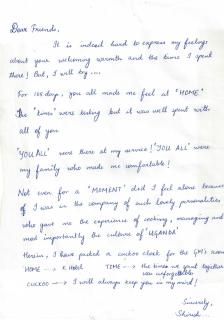 Dear Friends,
It is indeed hard to express my feelings
about your welcoming warmth and the time I spent
there! But, I will try ....
For 105 days, you all made me feel at "HOME"
The 'times' were testing but it was well spent with
all of you
'YOU ALL' were there at my service! 'YOU ALL' were
my family who made me comfortable!
Not even for a 'MOMENT' did I feel alone because
of I was in the company of such lovely personalities
who gave me the experience of cooking, managing and
most importantly the culture of 'UGANDA'
Herein, I have gifted a cuckoo clock for the GM's room
HOME → K Hotel TIME → the times we spent together
was unforgettable
CUCKOO → I will always keep you in my mind!
Sincerely,